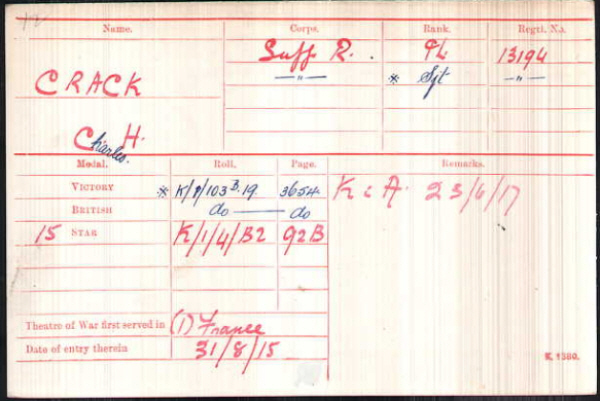 Name. Corps. Rank. Regtl. No.
CRACK Suff R. Pte 13194
—"— * Sjt —"—
Charles H.
Medal. Roll. Page. Remarks.
VICTORY * K/1/103 B.19 3654 K i A. 23/6/17
BRITISH do — do
15 STAR K/1/4/B2 92B
Theatre of War first served in (1) France
Date of entry therein 31/8/15
K. 1380.